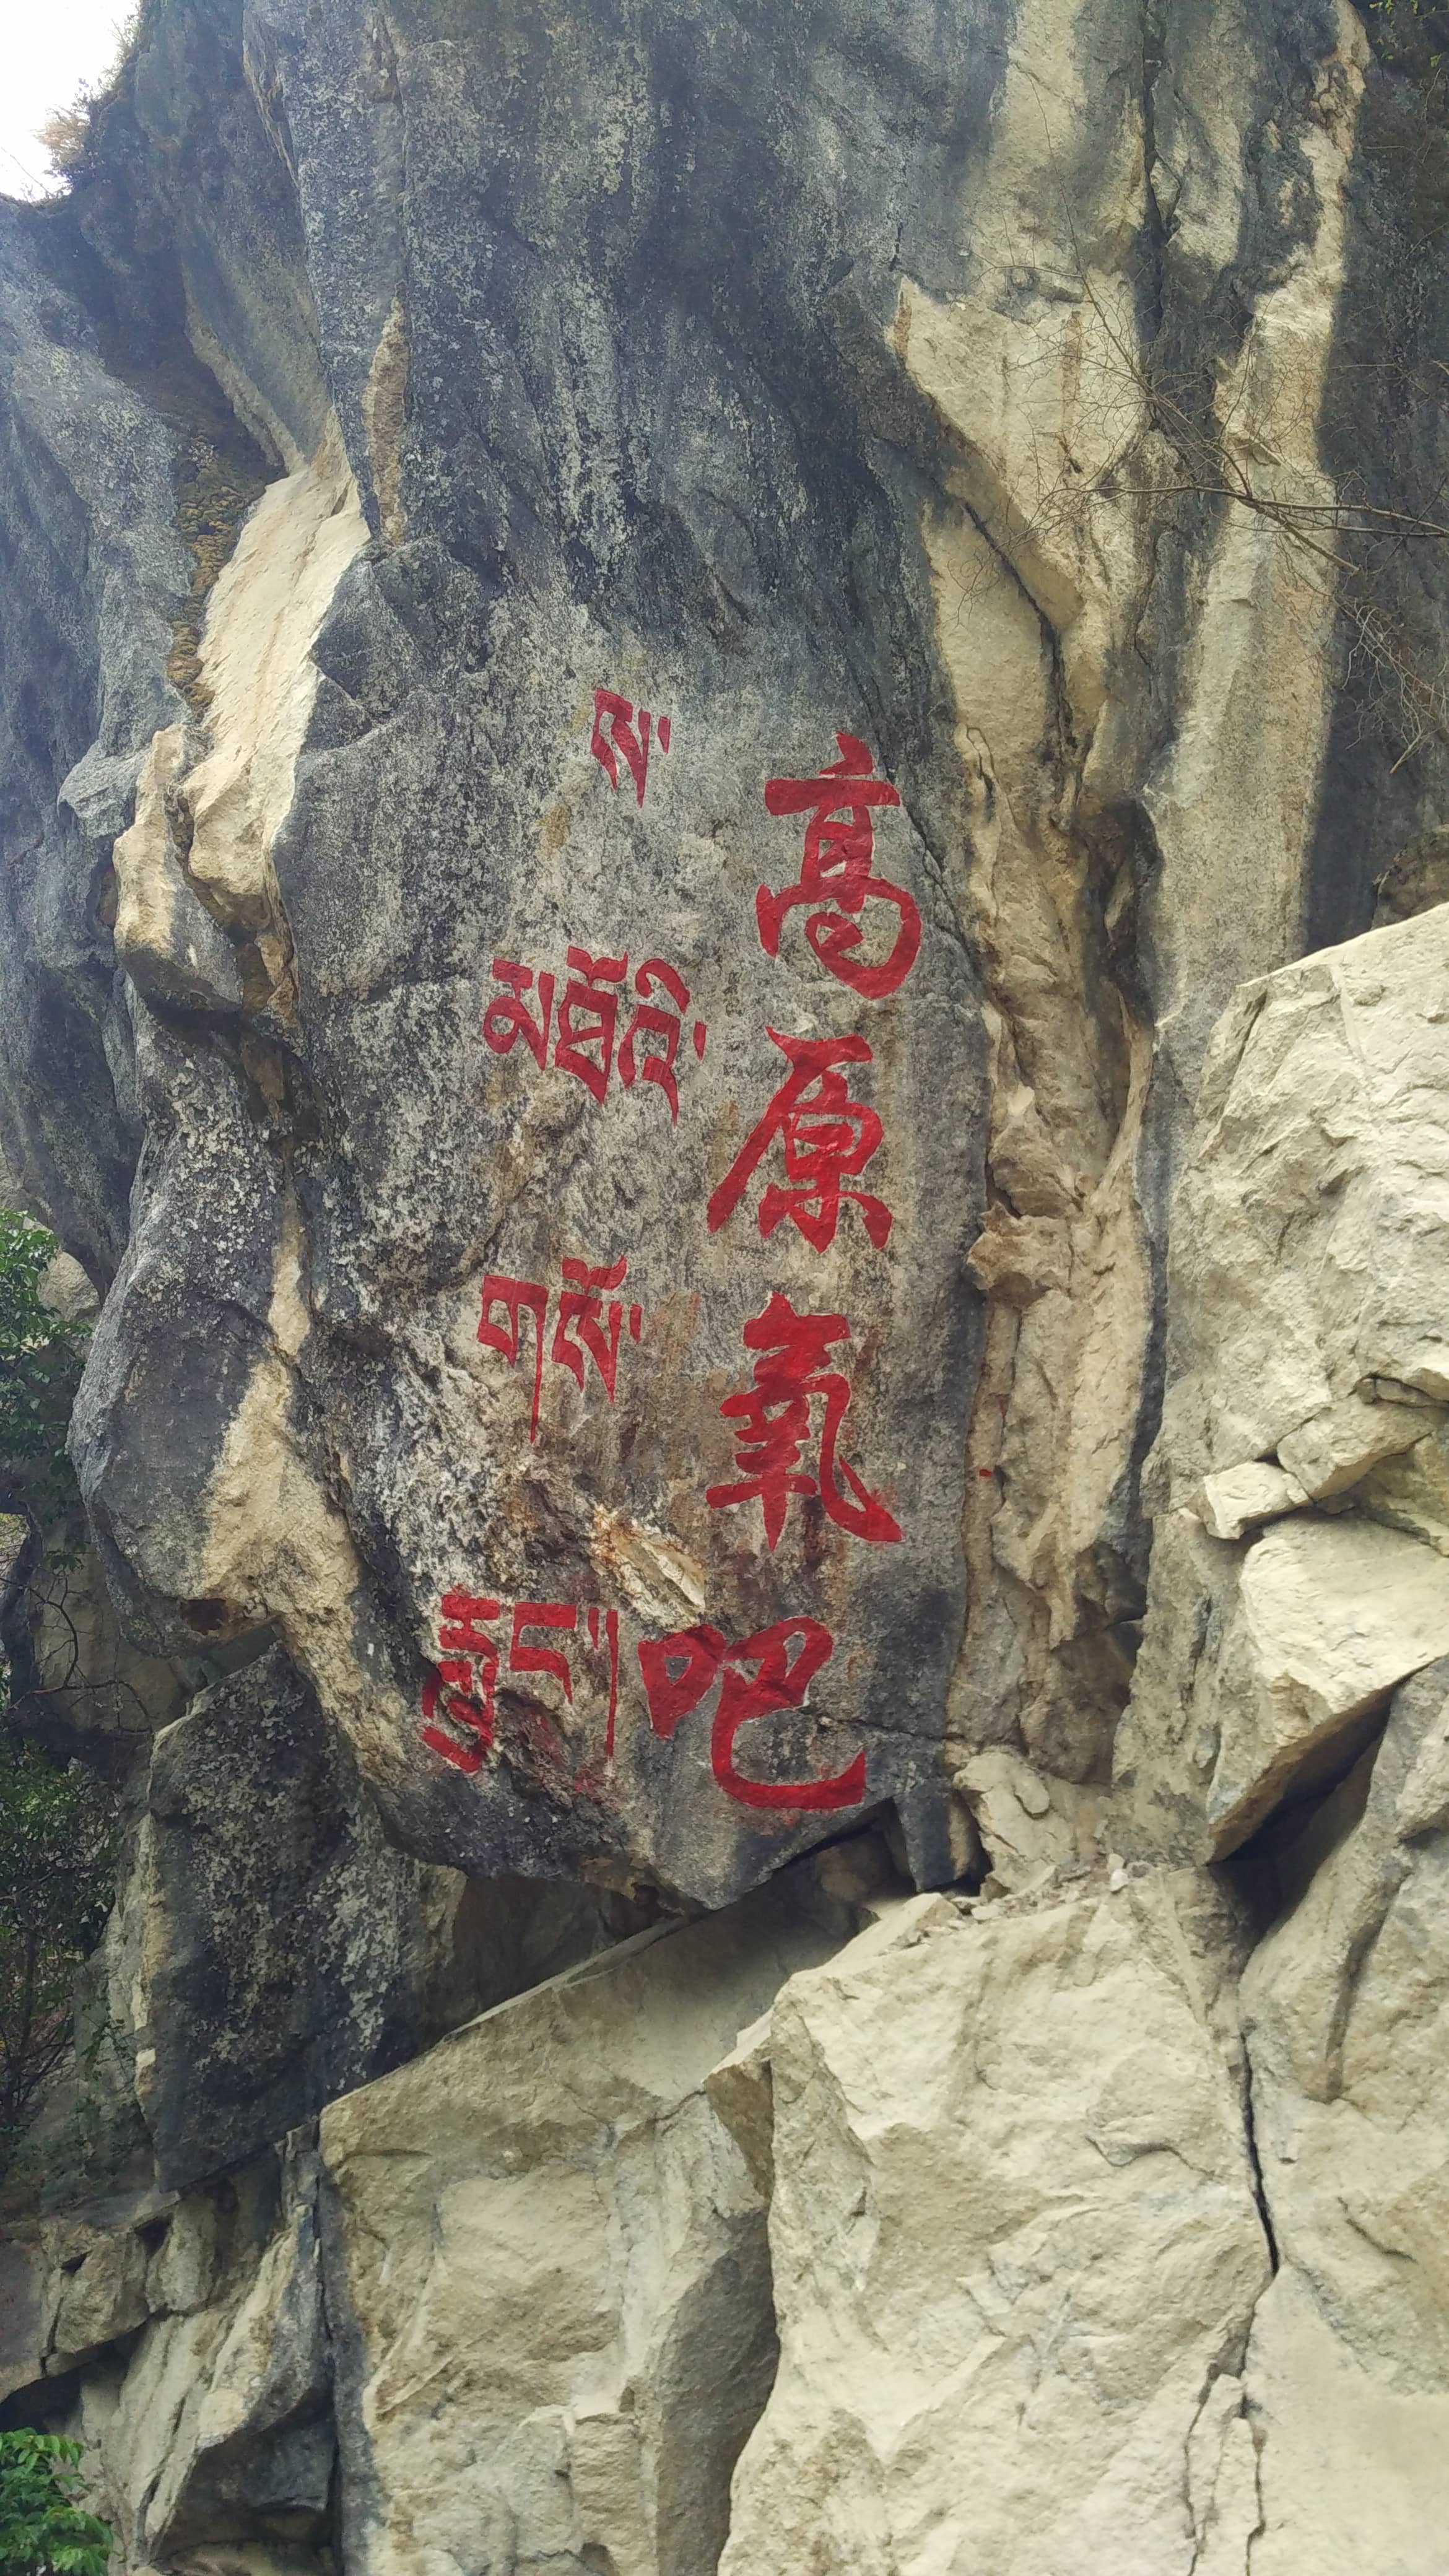 高原氧吧
ས་
མཐོའི་
གསོ་
རླུང་།